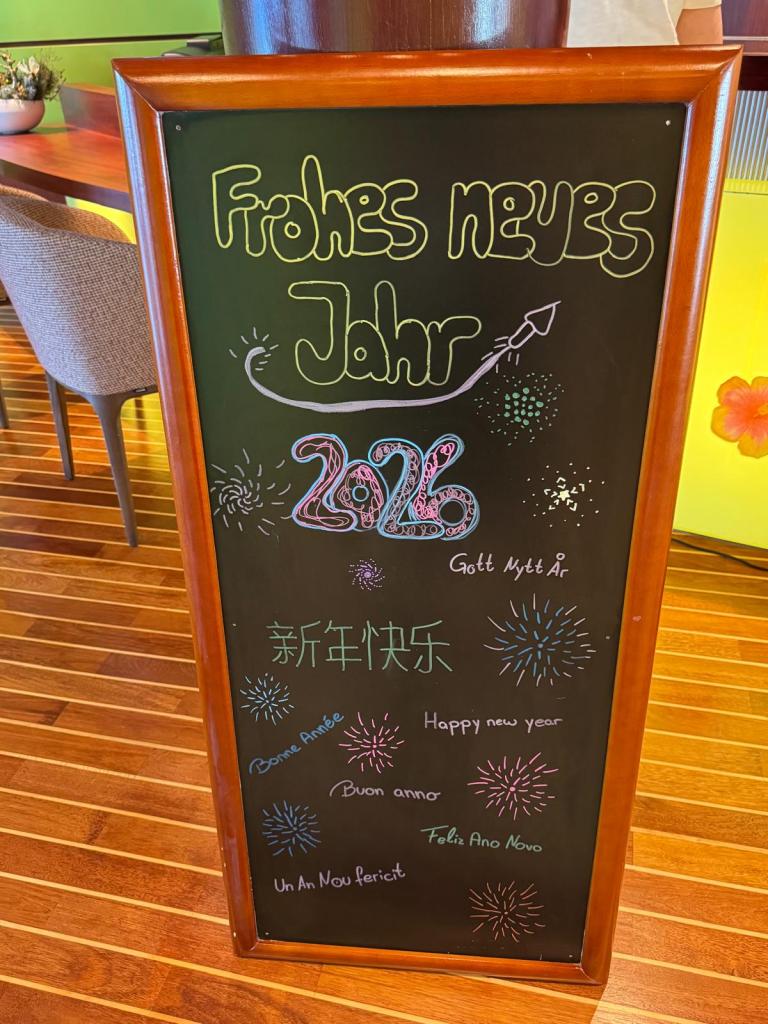 Frohes neues
Jahr
2026
Gott Nytt År
新年快乐
Bonne Année
Happy new year
Buon anno
Feliz Ano Novo
Un An Nou fericit